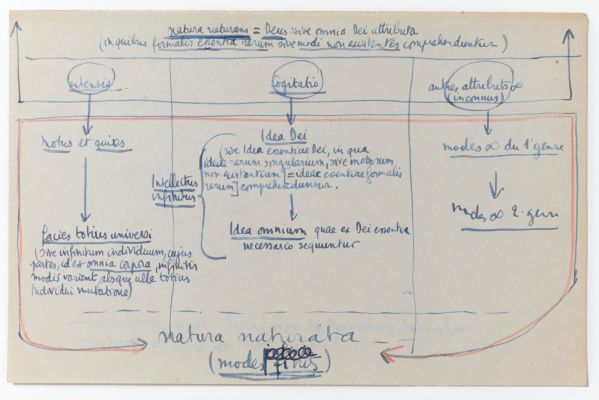 natura naturans = Deus sive omnia Dei attributa
(in quibus formalis essentia rerum sive modi non existentes comprehenduntur)
extensio
cogitatio
autres attributs ∞
(inconnus)
Motus et quies
Idea Dei
(sive Idea essentiae Dei, in qua
ideae rerum singularium, sive modorum
non existentium [= ideae essentiae formalis
rerum] comprehenduntur.
Intellectus
infinitus
Idea omnium quae ex Dei essentia
necessario sequuntur
modes ∞ du 1er genre
modes ∞ 2e genre
facies totius universi
(sive infinitum individuum, cujus
partes, id est omnia corpora, infinitis
modis variant, absque ulla totius
Individui mutatione)
natura naturata
(modes finis)